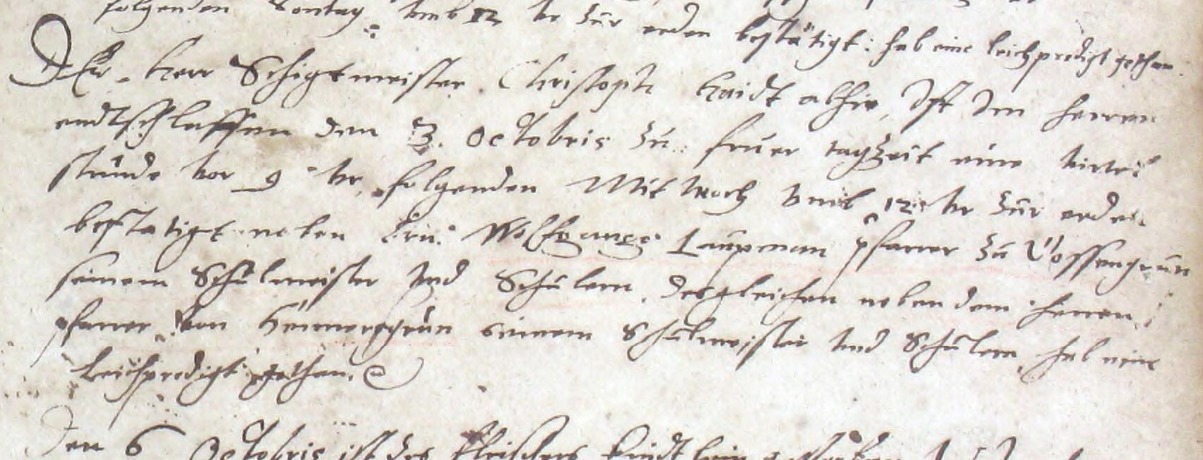 folgenden Sontag vmb 12 vr zur erden bestätigt: hab eine leichpredigt gethan.
Der Herr Schigtmeister Christoph Haidt alhie, Ist Im herren
endtschlaffen den 3. Octobris zu fruer tagzeit eine virtel
stunde vor 9 vr, folgenden Mitwoch vmb 12 vr zur erden
bestatigt neben Ern Wolfgango Laupman pfarrer zu Vossengrun
seinem Schulmeister vnd Schulern, desgleichen neben dem herren
pfarrer von seinem Schulmeister vnd Schulern, hab eine
Leichpredigt gethan.
Den 6 Octobris ist des fleischers kindtlein